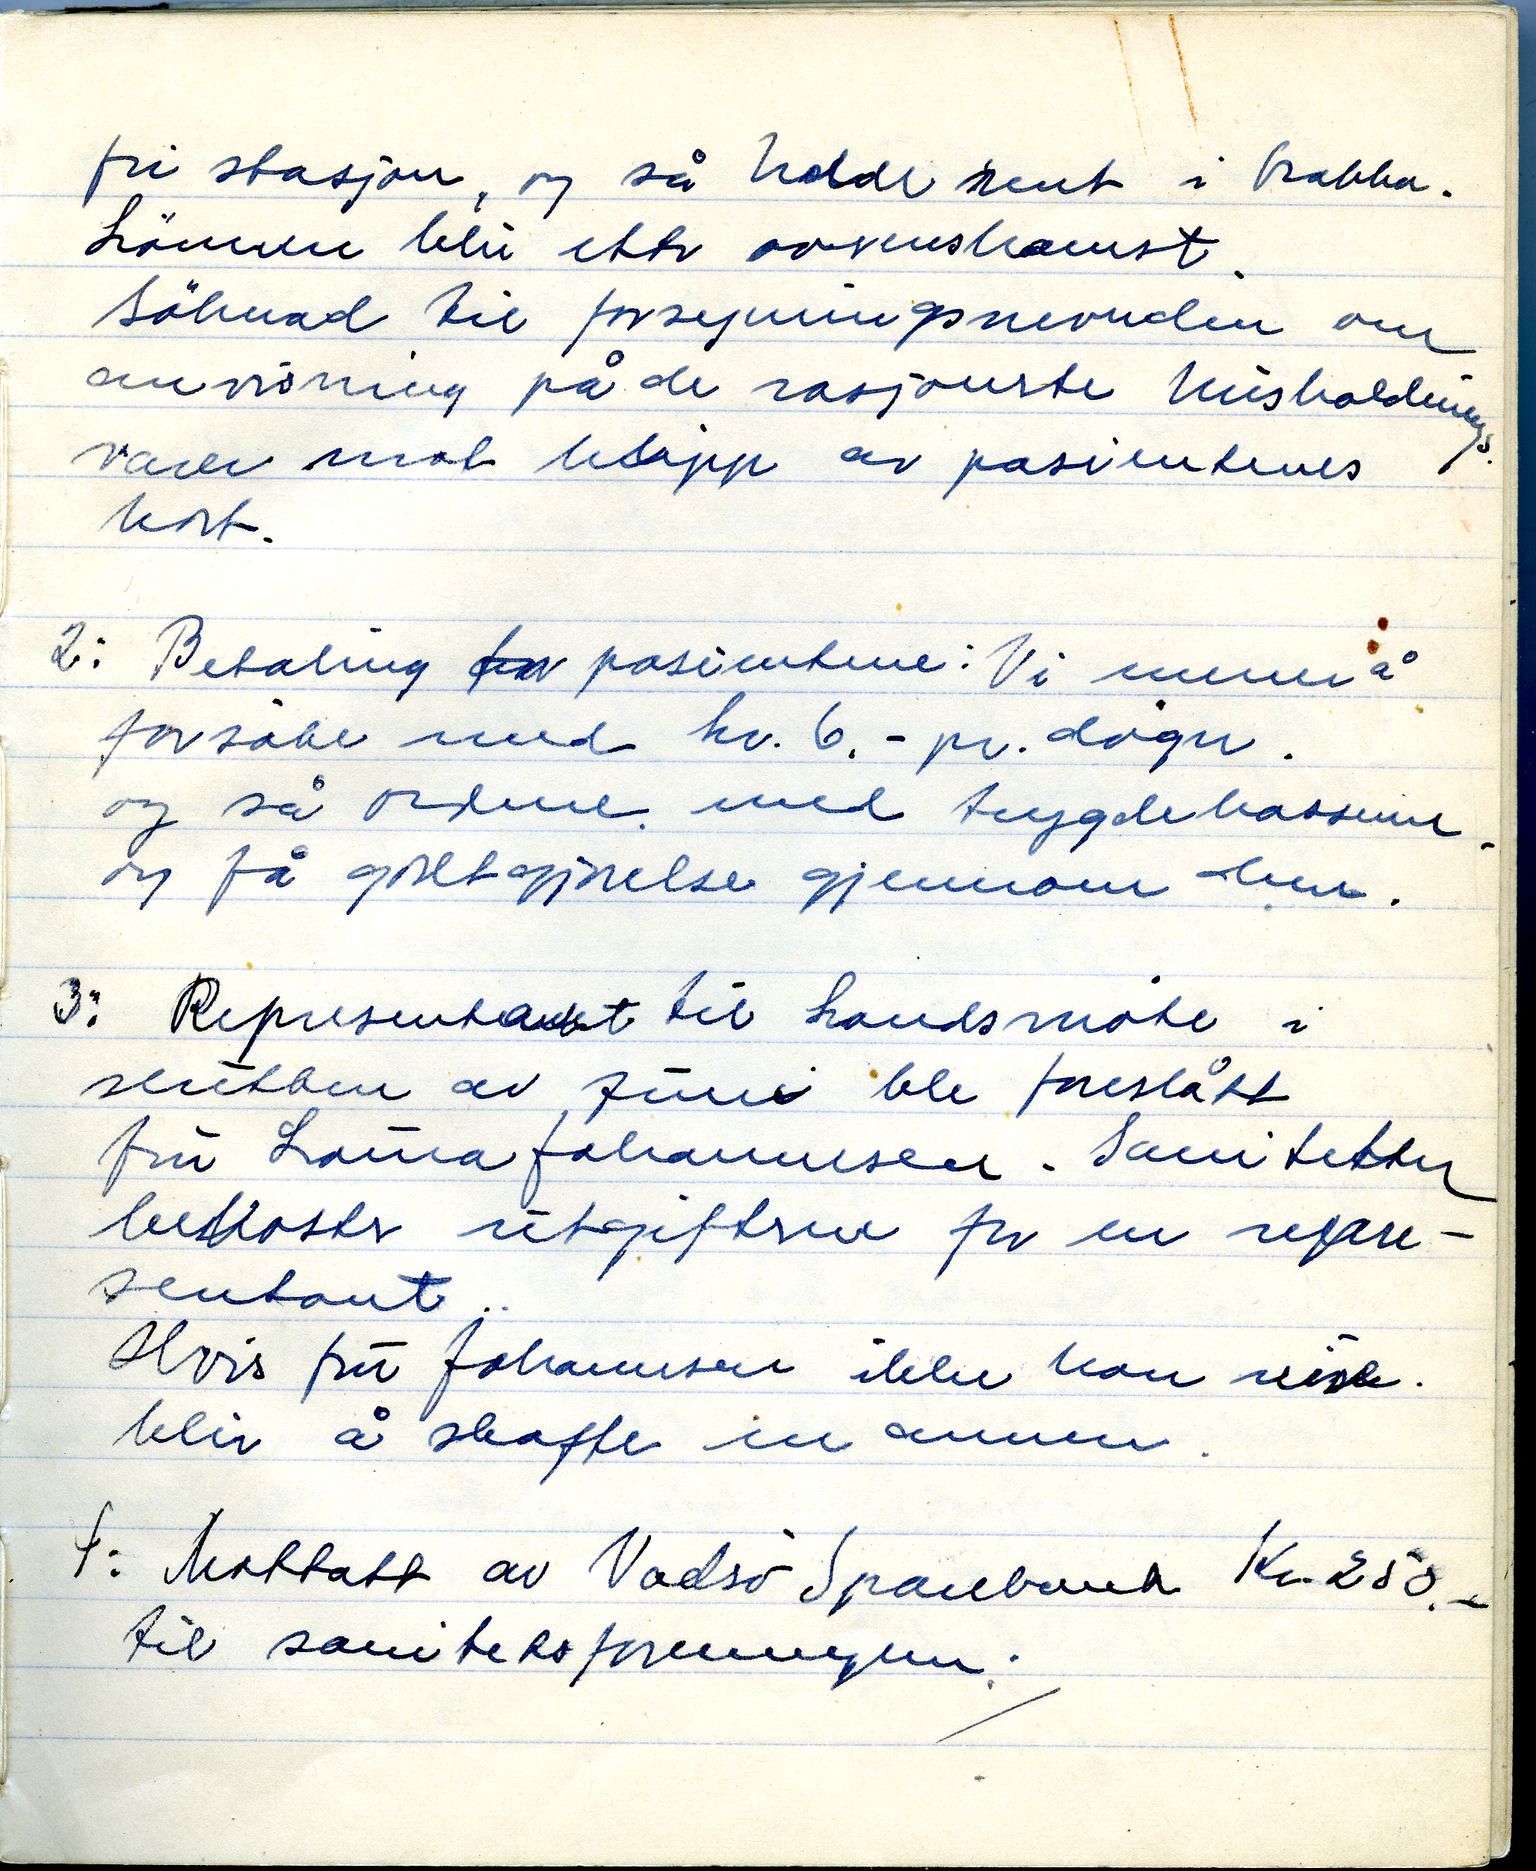 fri stasjon, og så holde rent i brakka.
Lönnen blir etter overenskomst.
Söknad til forsyningsnevnden om
anvisning på de rasjonerte husholdnings.
varer mot klipp av pasientenes
kort.
2: Betaling for pasientene: Vi mener å
forsöke med kr. 6.- pr. dögn.
og så ordne med trygdekassene.
og få godtgjörelse gjennom den.
3: Representant til Landsmöte i
slutten av juni ble foreslått
fru Laura Johannessen. Saniteten
bekoster utgiftene for en repre-
sentant..
Hvis fru Johannesen ikke kan reise.
blir å skaffe en annen.
4: Mottatt av Vadsö Sparebank Kr. 250.-
til sanitetsforeningen.